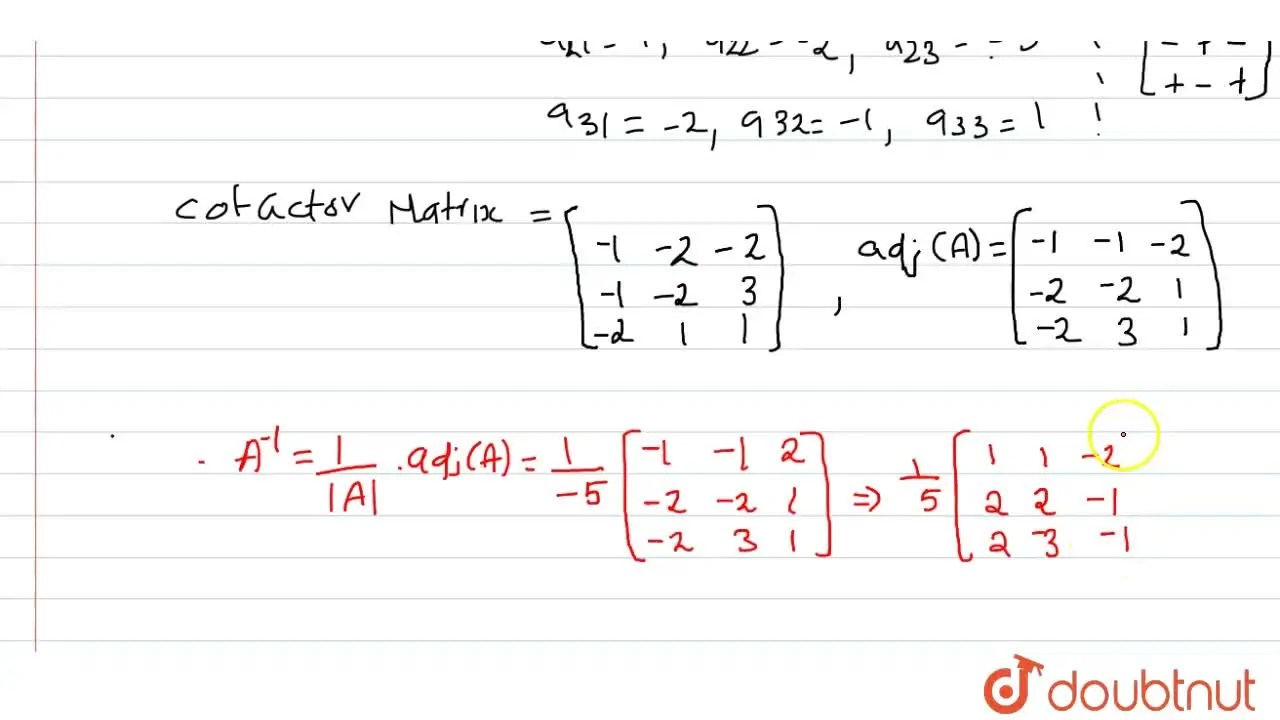 a21 = 1, a22 = -2, a23 = - 3 - + -
+ - +
a31 = -2, a32 = -1, a33 = 1 !
cofactor Matrix = [-1 -2 -2
-1 -2 3
-2 1 1] , adj(A) = [-1 -1 -2
-2 -2 1
-2 3 1]
. A⁻¹ = 1/|A| . adj(A) = 1/-5 [-1 -1 2
-2 -2 1
-2 3 1] => 1/5 [1 1 -2
2 2 -1
2 -3 -1
doubtnut